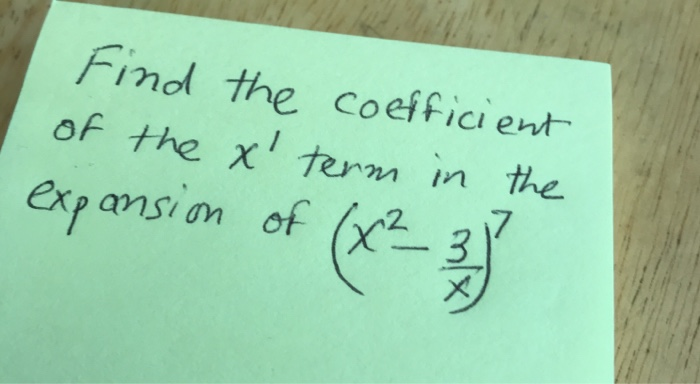 Find the coefficient
of the x¹ term in the
expansion of (x² - 3/x)⁷